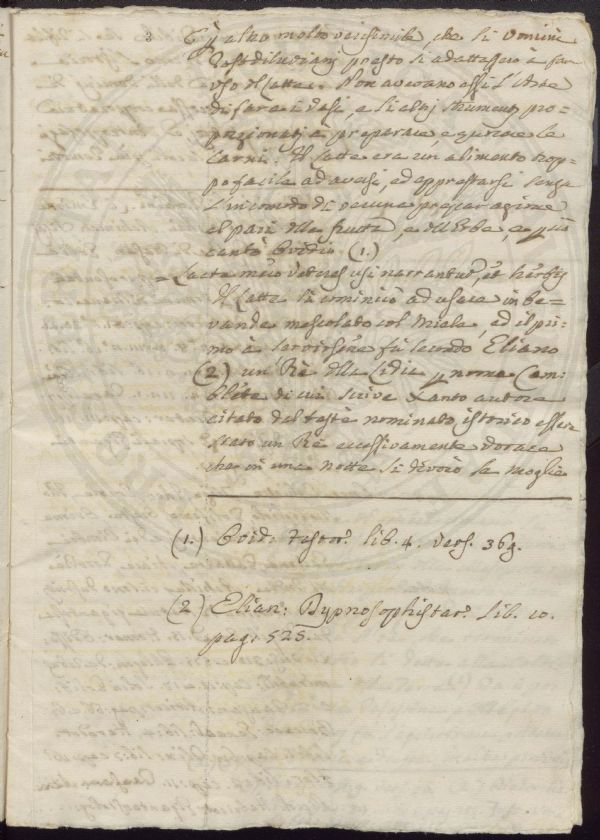 3 È altro molto verisimile, che li Uomini
Postdiluviani presto si adattassero à far
uso del latte. Non avevano essi l'Arte
di fare i vasi, e li altri strumenti pro=
porzionati a preparare, e cuocere le
Carni. Il latte era un alimento trop=
po facile ad aversi, ed appressarsi senza
l'incomodo di veruna preparazione
al pari delle frutta, e dell'Erbe, e più
cantò Ovidio (1.)
= Lacte mero veteres usi narrantur, et herbis
Il latte si cominciò ad usare in be=
vande mescolato col Miele, ed il pri=
mo à servirsene fù secondo Eliano
(2) un Rè della Lidia p nome Cam=
blete di cui scrive Xanto autore
citato dal testè nominato istorico esser
stato un Rè eccessivamente vorace
che in una notte si devorò la moglie
(1.) Ovid: Fastor. lib. 4. vers. 369.
(2) Elian: Dypnosophistar. Lib. 10.
pag: 525.